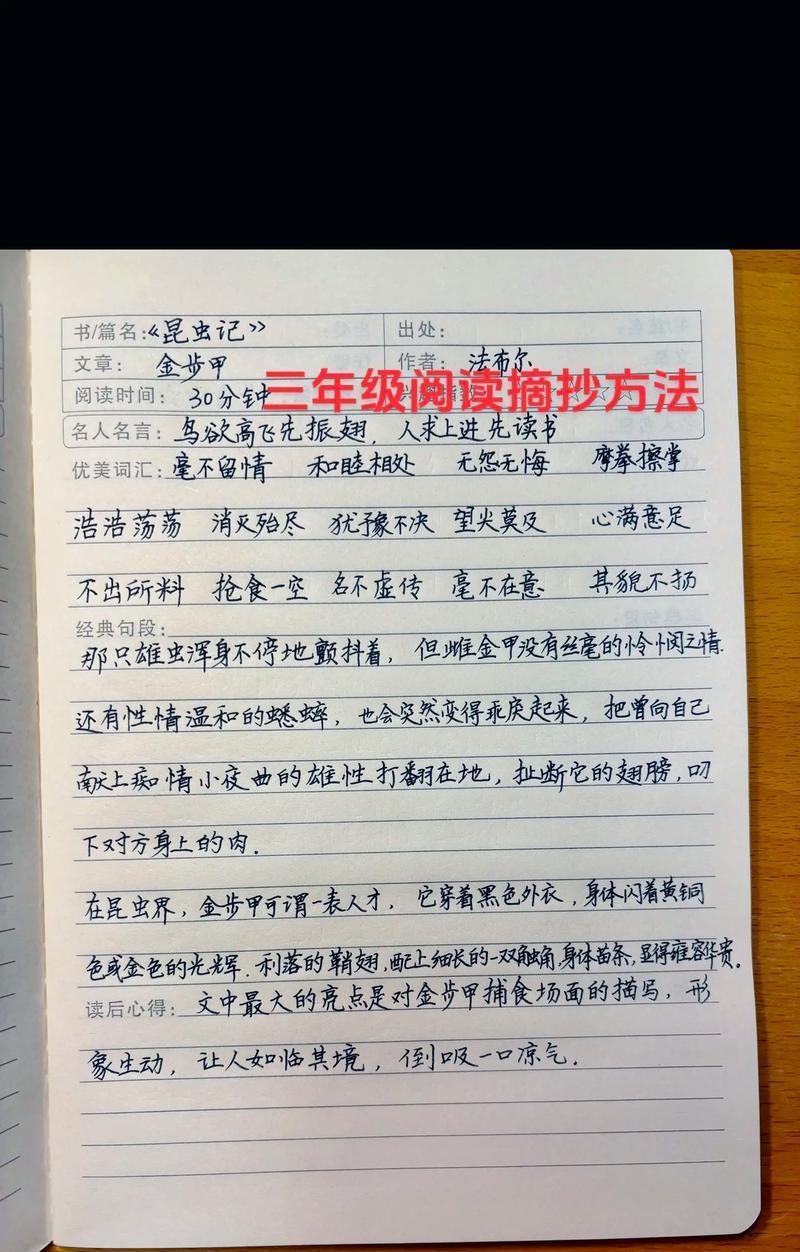 书/篇名：《昆虫记》 出处：
文章： 金步甲 作者： 法布尔
阅读时间： 30分钟
三年级阅读摘抄方法
名人名言： 鸟欲高飞先振翅，人求上进先读书
优美词汇： 毫不留情 和睦相处 无怨无悔 摩拳擦掌
浩浩荡荡 消灭殆尽 犹豫不决 望尘莫及 心满意足
不出所料 抢食一空 名不虚传 毫不在意 其貌不扬
经典句段：
那只雄虫浑身不停地颤抖着，但雌金甲没有丝毫的怜悯之情.
还有性情温和的蟋蟀，也会突然变得乖戾起来，把曾向自己
献上痴情小夜曲的雄性打翻在地，扯断它的翅膀，叨
下对方身上的肉.
在昆虫界，金步甲可谓一表人才，它穿着黑色外衣，身体闪着黄铜
色或金色的光辉.利落的鞘翅，配上细长的一双触角，身体苗条，显得雍容华贵.
读后心得： 文中最大的亮点是对金步甲捕食场面的描写，形
象生动，让人如临其境，倒吸一口凉气.